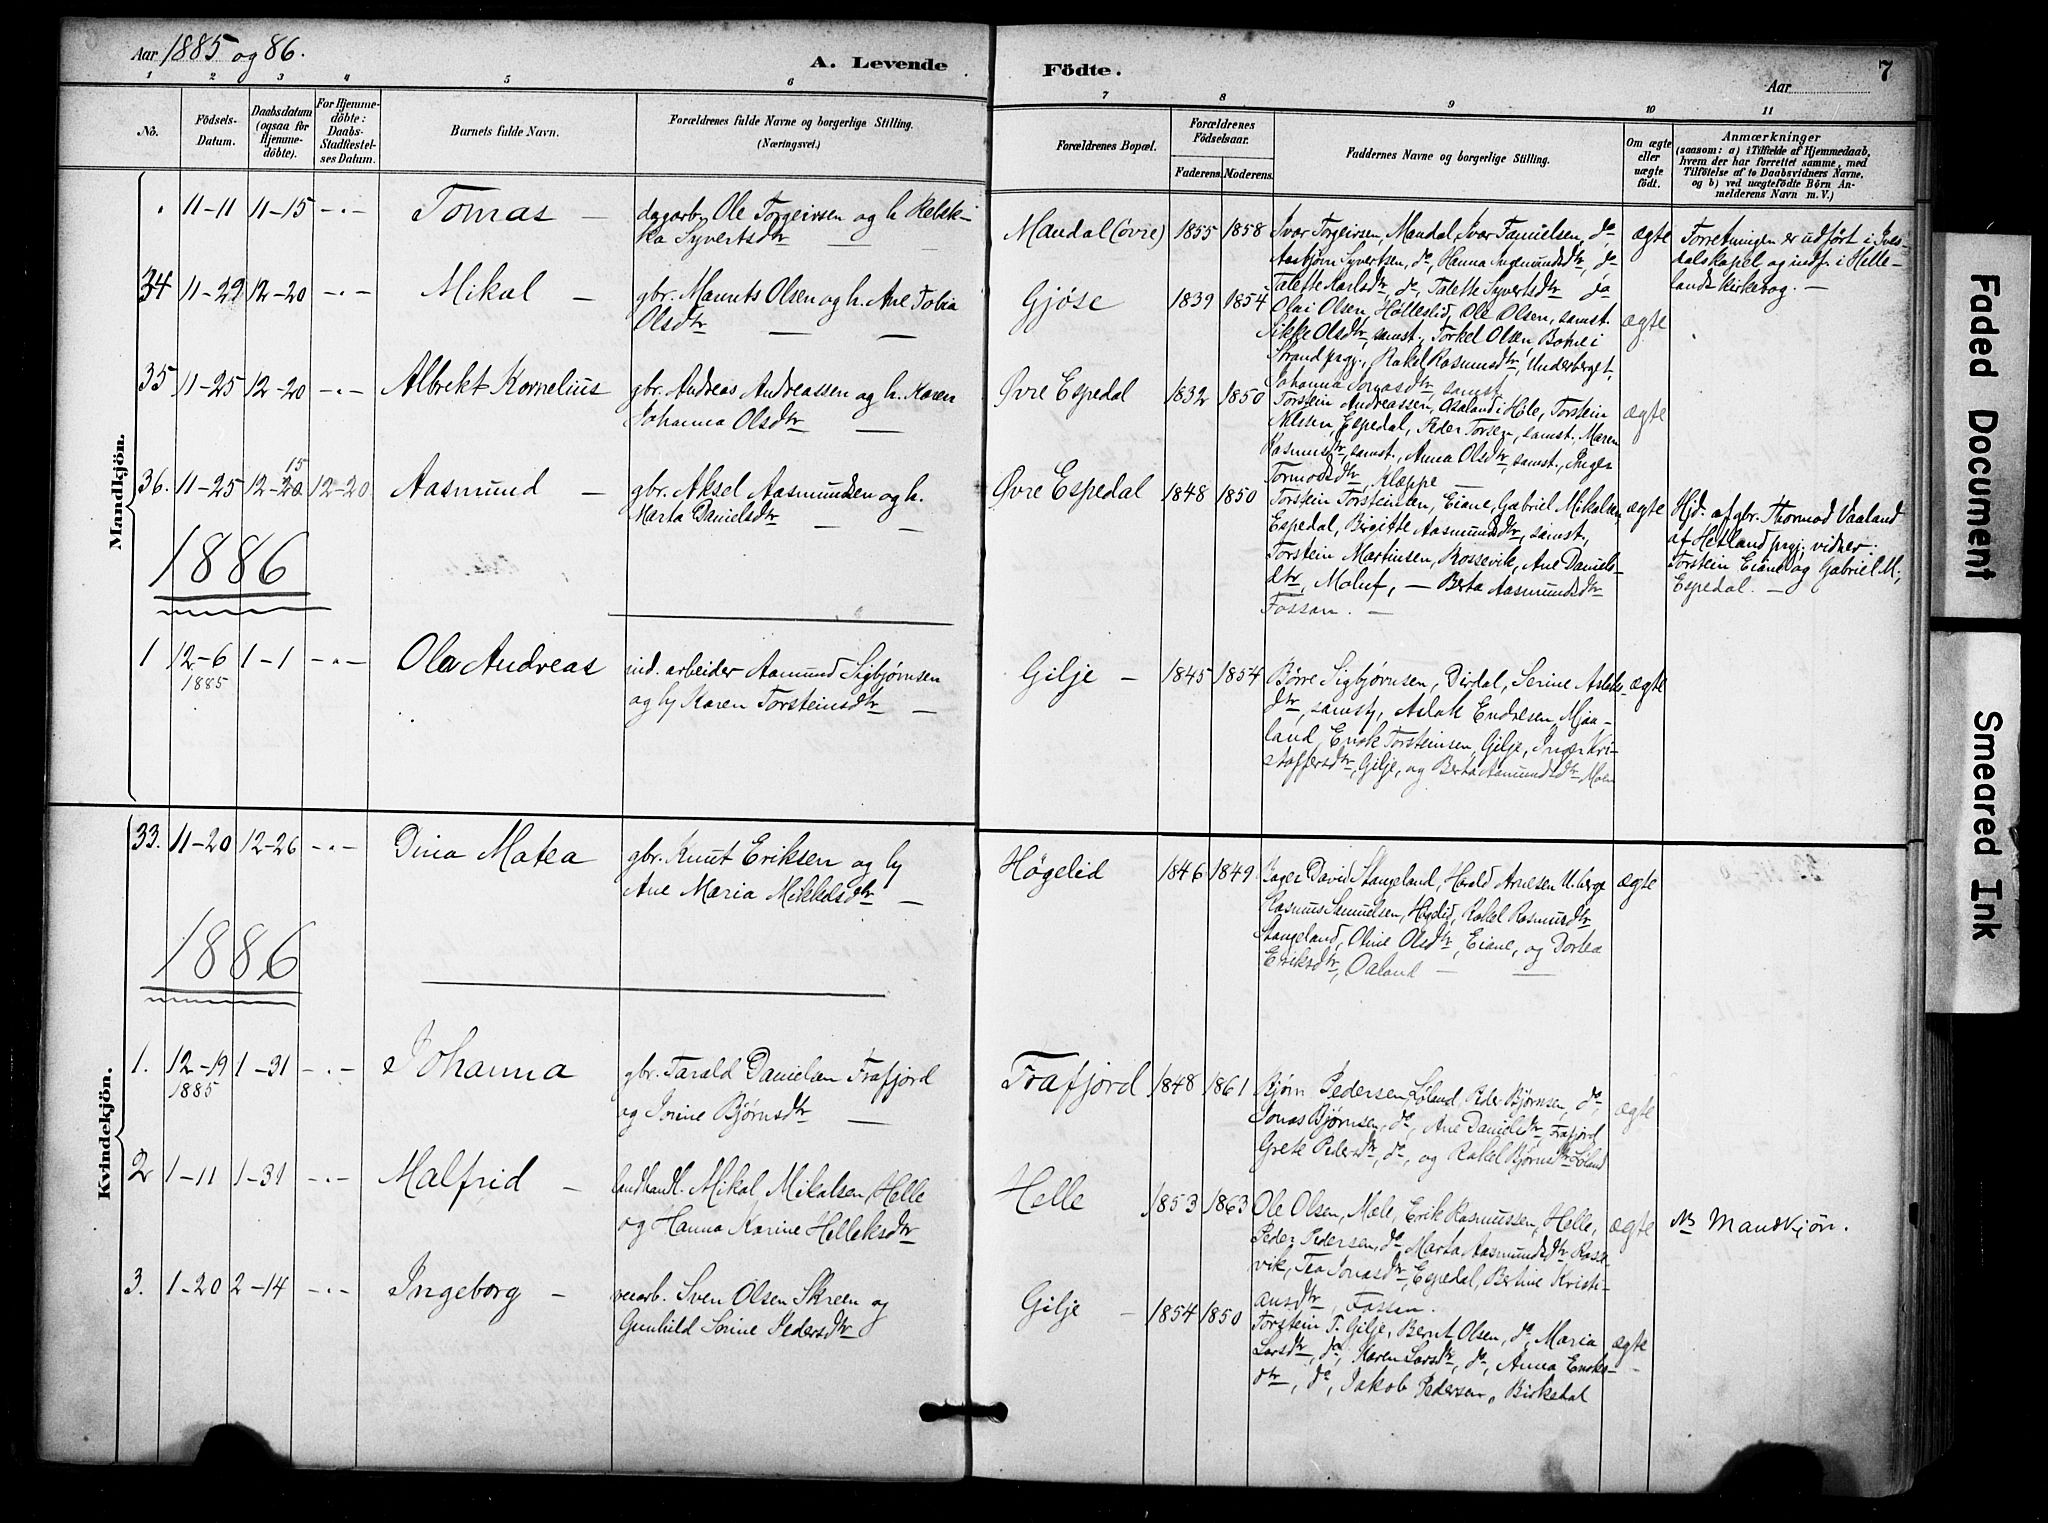 Aar 1885 og 86.
A. Levende
Födte.
7
Aar
1 2 3 4 5 6 7 8 9 10 11
No.
Födsels-
Datum.
Daabsdatum
(ogsaa for
Hjemme-
döbte).
For Hjemme-
döbte:
Daabs-
Stadfæstel-
ses Datum.
Barnets fulde Navn.
Forældrenes fulde Navne og borgerlige Stilling.
(Næringsvei.)
Forældrenes Bopæl.
Forældrenes
Födselsaar.
Faderens. Moderens.
Faddernes Navne og borgerlige Stilling.
Om ægte
eller
uægte
födt.
Anmærkninger
(saasom: a) i Tilfælde af Hjemmedaab,
hvem der har forrettet samme, med
Tilföielse af to Daabsvidners Navne,
og b) ved uægtefödte Börn An-
melderens Navn m. V.)
Mandkjön.
11-11 11-15 -"- Tomas —
dagarb. Ole Torgeirsen og h.
ka Syvertsdtr —
Mandal (øvre) 1855 1858
Ivar Torgeirsen, Mandal, Ivar Danielsen, do,
Aasbjørn Syvertsen, do, Hanna Ingemundsdtr, do
Talette Karlsdtr, do, Talette Syvertsdtr do
ægte
Forretningen er udført i Ives-
dalskapel, og indf. i Helle-
lands Kirkebog. —
34 11-29 12-20 -"- Mikal —
gbr. Maurits Olsen og h. Ane Tobia
Olsdtr — —
Gjøse 1839 1854
Olai Olsen, Hølleslid, Ole Olsen, samst.
Sikke Olsdtr, samst., Torkel Olsen, Botne i
Strand prgj., Rakel Rasmusdtr, Underberget,
Johanna Jonasdtr, samst.
ægte
35 11-25 12-20 -"- Albrekt Kornelius
gbr. Andreas Andreassen og h. Karen
Johanna Olsdtr —
Øvre Espedal 1832 1850
Torstein Andreassen, Osaland i Høle, Torstein
Nilssen, Espedal, Peder Torsen, samst. Maren
Rasmusdtr, samst., Anna Olsdtr, samst., Inger
Tormodsdtr, Kleppe —
ægte
36. 11-25 12-20 15 12-20 Aasmund —
gbr. Aksel Aasmundsen og h.
Marta Danielsdtr — —
Øvre Espedal 1848 1850
Torstein Torsteinsen, Eiane, Gabriel Mikalsen
Espedal, Birgitte Aasmundsdtr, samst.,
Torstein Martinsen, Rossevik, Ane Daniels-
dtr, Molaug, — Berta Aasmundsdtr
Fossan. —
ægte
Hjd. af gbr. Thormod Vaaland
af Hetland prgj. vidner:
Torstein Eiane og Gabriel M.
Espedal. —
1886
1 12-6 1-1 -"- Ola Andreas
1885
ind. arbeider Aamund Sigbjørnsen
og hj Karen Torsteinsdtr —
Gilje — 1845 1854
Børre Sigbjørnsen, Dirdal, Serine Aslaks-
dtr, samst, Aslak Endresen, Mjaa-
land, Enok Torsteinsen, Gilje, Inger Kri-
stoffersdtr, Gilje, og Berta Aamundsdtr, Moen
ægte
Kvindekjön.
33. 11-20 12-26 -"- Dina Matea
gbr. Knut Eriksen og hj
Ane Maria Mikkelsdtr —
Høgelid 1846 1849
David Stangeland, Harald Arnesen U.berge
Rasmus Samuelsen, Høgelid, Rakel Rasmusdtr
Stangeland, Oline Olsdtr, Eiane, og Dortea
Eriksdtr, Oaland — —
ægte
1886
1. 12-19 1-31 -"- Johanna
1885
gbr. Tarald Danielsen Frafjord
og Jorine Bjørnsdtr —
Frafjord 1848 1861
Bjørn Pedersen, Løland, Peder Bjørnsen, do,
Jonas Bjørnsen, do, Ane Danielsdtr Frafjord
Grete Pedersdtr, do, og Rakel Bjørnsdtr Løland
ægte
2 1-11 1-31 -"- Malfrid —
landhandl. Mikal Mikalsen, Helle
og Hanna Karine Helleksdtr
Helle 1853 1863
Ole Olsen, Mæle, Erik Rasmussen, Helle,
Peder Pedersen, do Marta Aasmundsdtr Rosse-
vik, Tea Jonasdtr, Espedal, Bertine Kristi-
ansdtr, Fossan.
ægte
NB Mandkjøn.
3. 1-20 2-14 -"- Ingeborg —
veiarb. Sven Olsen Skreen og
Gunhild Sorine Pedersdtr
Gilje — 1854 1850
Torstein T. Gilje, Bernt Olsen, do, Maria
Larsdtr, do, Karen Larsdtr, do, Anna Enoks-
dtr, do, Jakob Pedersen, Birkedal
ægte
Faded Document
Smeared Ink